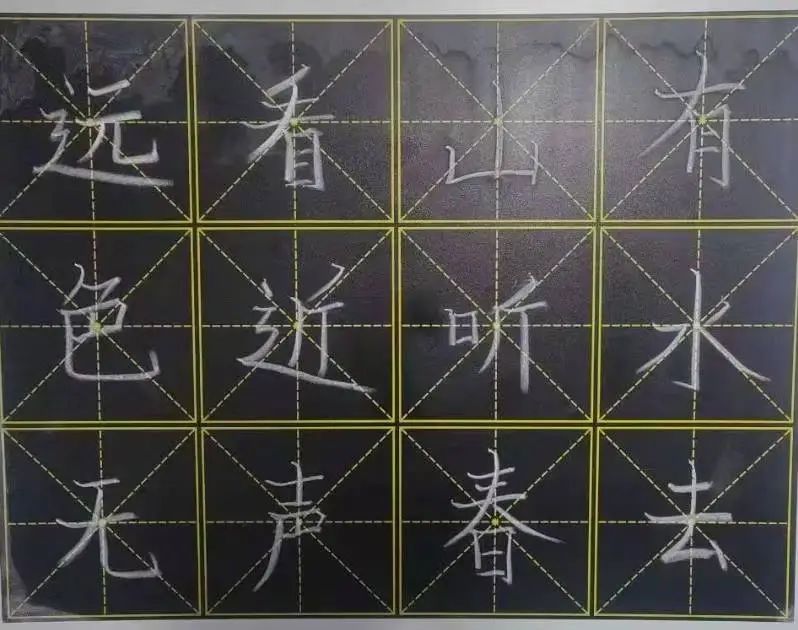 远看山有
色近听水
无声春去